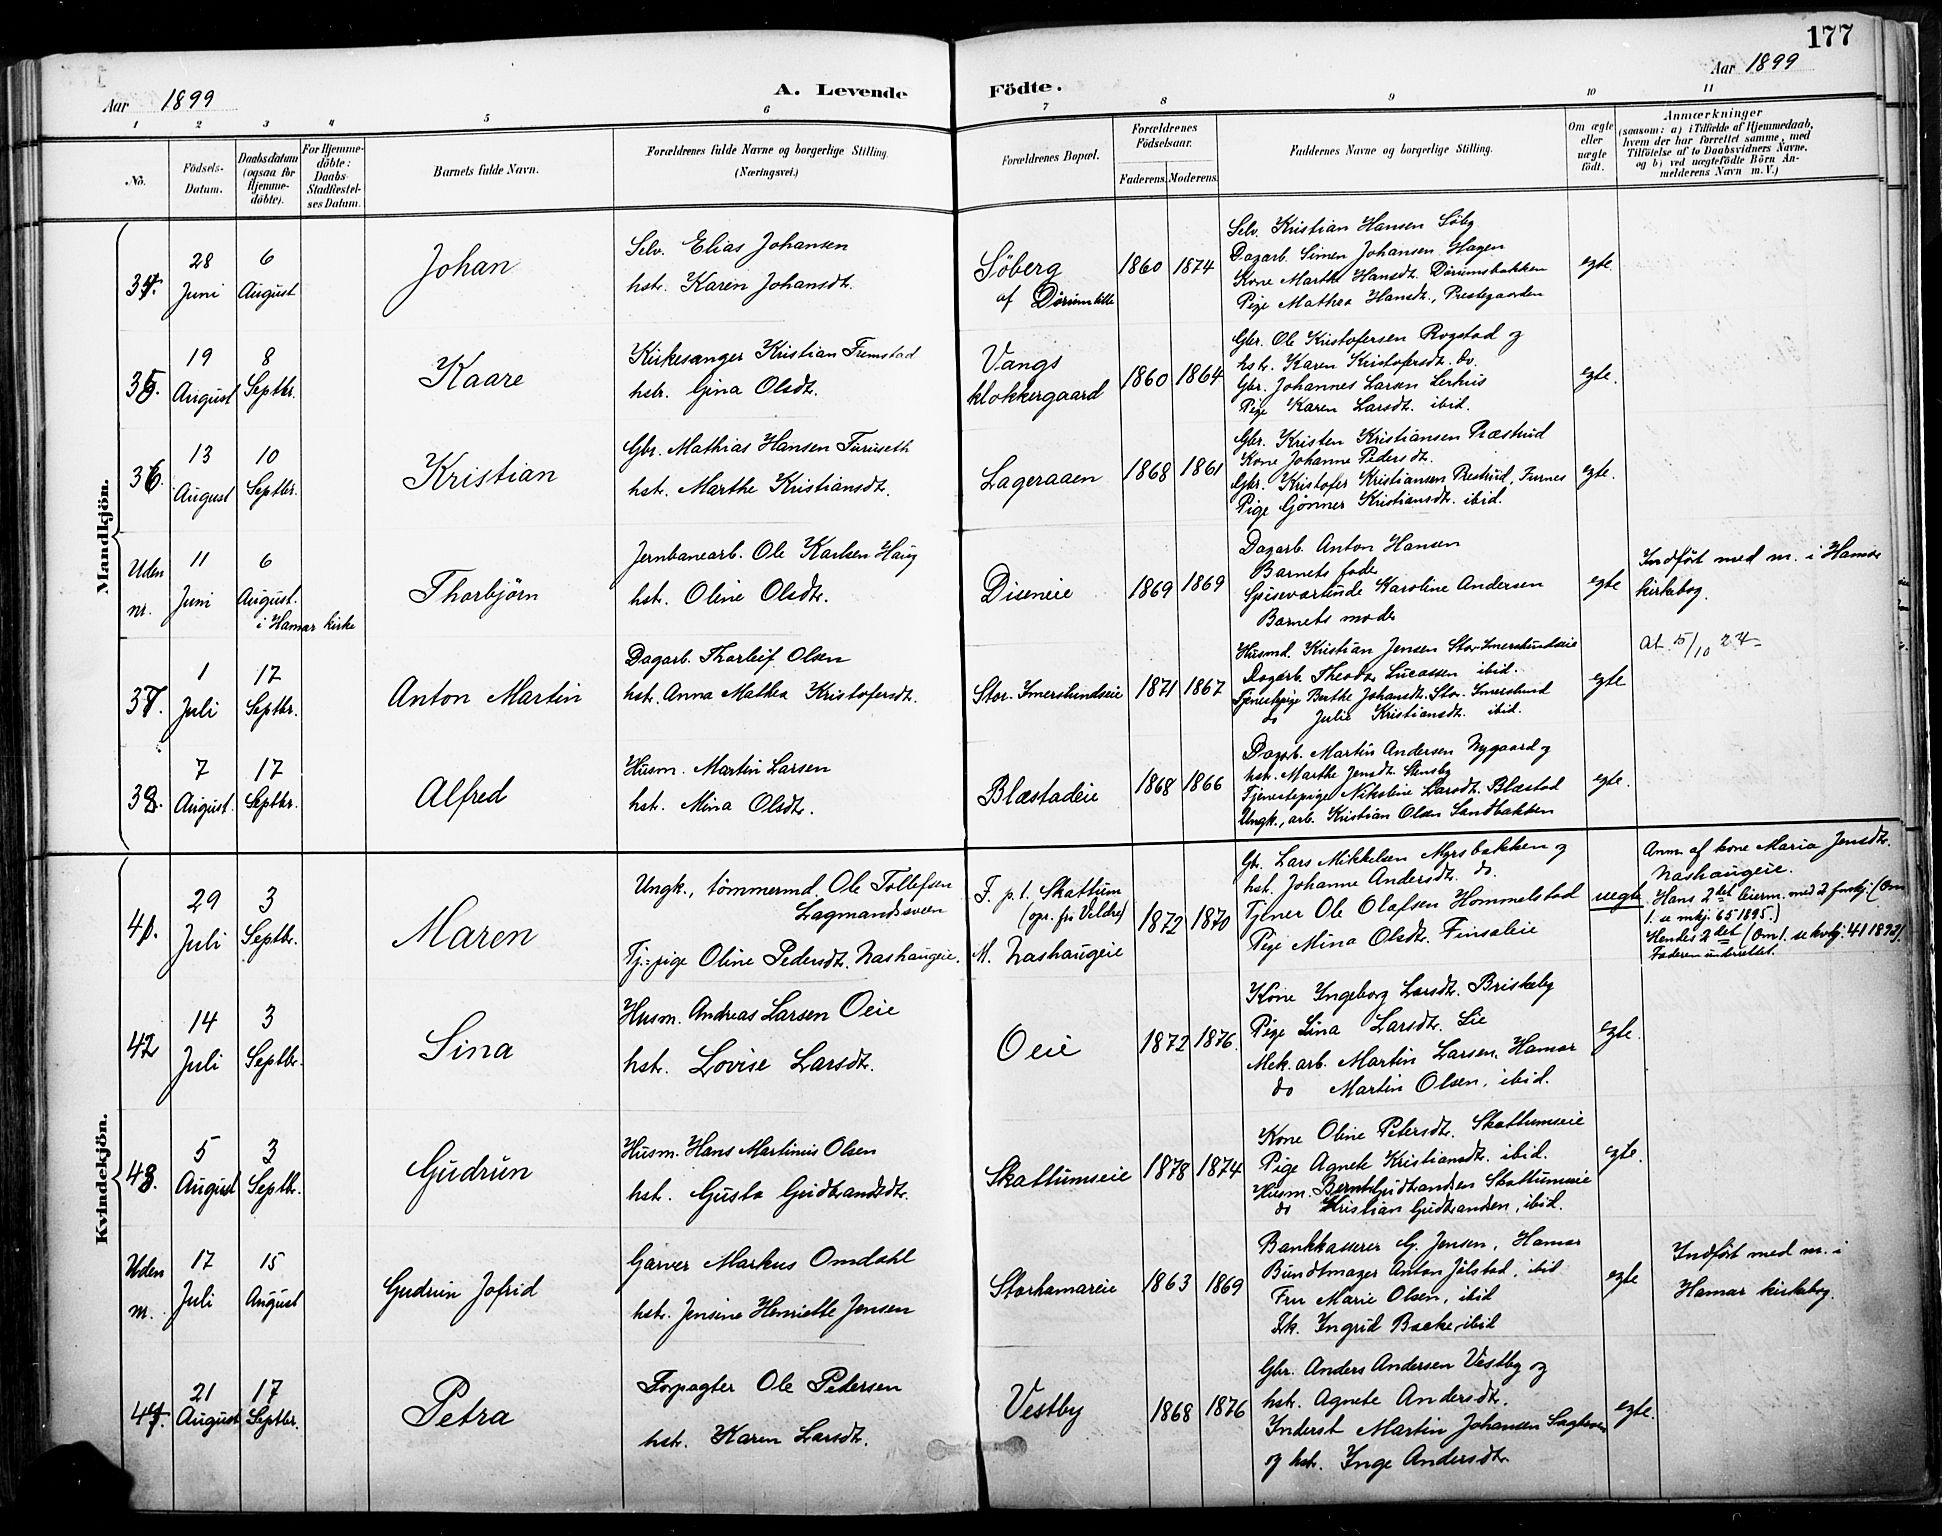 177
Aar 1899
A. Levende Födte.
Aar 1899
1 2 3 4 5 6 7 8 9 10 11
No.
Födsels-
Datum.
Daabsdatum
(ogsaa for
Hjemme-
döbte).
For Hjemme-
döbte:
Daabs-
Stadfæstel-
ses Datum.
Barnets fulde Navn.
Forældrenes fulde Navne og borgerlige Stilling.
(Næringsvei.)
Forældrenes Bopæl.
Forældrenes
Födselsaar.
Faderens. Moderens.
Faddernes Navne og borgerlige Stilling.
Om ægte
eller
uægte
födt.
Anmærkninger
(saasom: a) i Tilfælde af Hjemmedaab,
hvem der har forrettet samme, med
Tilföielse af to Daabsvidners Navne,
og b) ved uægtefödte Börn An-
melderens Navn m. V.)
Mandkjön.
34.
28
Juni
6
August
Johan
Selv. Elias Johansen
hstr. Karen Johansdt.
Söberg
af Dörumlille
1860 1874
Selv. Kristian Hansen Söby
Dagarb. Simen Johansen Hagen
Kone Marthe Hansdt. Dörumsbakken
Pige Mathea Hansdt., Prestegaarden
egte.
35.
19
August
8
Septbr.
Kaare
Kirkesanger Kristian Fremstad
hstr. Gina Olsdt.
Vangs
klokkergaard
1860 1864
Gbr. Ole Kristofersen Rogstad og
hst. Karen Kristofersdt. do.
Gbr. Johannes Larsen Lerhus
Pige Karen Larsdt. ibid.
egte.
36.
13
August
10
Septbr.
Kristian
Gbr. Mathias Hansen Furuseth
hst. Marthe Kristiansdt.
Lageraaen
1868 1861
Gbr. Kristen Kristiansen Præstrud
Kone Johanne Pedersdt.
Gbr. Kristofer Kristiansen Prestrud, Furnes
Pige Gönner Kristiansdt. ibid.
egte.
Uden
nr.
11
Juni
6
August.
i Hamar kirke
Thorbjörn
Jernbanearb. Ole Karlsen Haug
hst. Oline Olsdt.
Diseneie
1869 1869
Dagarb. Anton Hansen
Barnets fader
Spiseværtinde Karoline Andersen
Barnets moder
egte
Indfört med nr. i Hamar
kirkebog.
37.
1
Juli
17
Septbr.
Anton Martin
Dagarb. Thorleif Olsen
hst. Anna Mathea Kristofersdt.
Stor. Imerslundseie
1871 1867
Husmd. Kristian Jensen Stor-Imerslundseie
Dagarb. Theodor Lucassen ibid.
Tjenestepige Berthe Johansdt. Stor. Imerslund
do Julie Kristiansdt. ibid.
egte
at. 5/10 24
38.
7
August.
17
Septbr.
Alfred
Husm. Martin Larsen
hst. Mina Olsdt.
Blæstadeie
1868 1866
Dagarb. Martin Andersen Nygaard og
hst. Marthe Jensdt. Stensby
Tjenestepige Nikoline Larsdt. Blæstad
Ungk., arb. Kristian Olsen Sandbakken
egte.
Kvindekjön.
41.
29
Juli
3
Septbr.
Maren
Ungk., tömmermd. Ole Tollefsen
Lagmandsveen
Tj.-pige Oline Pedersdt. Nashaugeie.
F. p. t. Skattum
(opr. fra Veldre)
M. Nashaugeie
1872 1870
Gbr. Lars Mikkelsen Myrsbakken og
hst. Johanne Andersdt. do.
Tjener Ole Olafsen Hommelstad
Pige Mina Olsdt. Finsaleie
uegte
Anm. af kone Maria Jensdt.
Nashaugeie.
Hans 2det leierm. med 2 fruetj. (Om
1. se mkj. 65 1895.)
Hendes 2det (Om 1. se kvkj. 41 1892).
Faderen underrettet.
42
14
Juli
3
Septbr.
Sina
Husm. Andreas Larsen Oeie
hst. Lovise Larsdt.
Oeie
1872 1876.
Kone Ingeborg Larsdt. Briskeby
Pige Lina Larsdt. Lie
Mek. arb. Martin Larsen, Hamar
do Martin Olsen, ibid.
egte.
43.
5
August
3
Septbr.
Gudrun
Husm. Hans Martinius Olsen
hst. Gusta Gudbrandsdt.
Skattumseie
1878 1874
Kone Oline Petersdt. Skattumseie
Pige Agnete Kristiansdt. ibid.
Husm. Bernt Gudbrandsen Skattumseie
do Kristian Gudbrandsen, ibid.
egte.
Uden
nr.
17
Juli
15
August
Gudrun Jofrid
Garver Markus Omdahl
hst. Jensine Henriette Jensen
Storhamareie
1863 1869
Bankkasserer G. Jensen, Hamar
Bundtmager Anton Jölstad, ibid
Fru Marie Olsen, ibid
Frk. Ingrid Backe, ibid
egte
Indfört med nr. i
Hamar kirkebog.
44.
21
August
17
Septbr.
Petra
Forpagter Ole Petersen
hst. Karen Larsdt.
Vestby
1868 1876
Gbr. Anders Andersen Vestby og
hst. Agnete Andersdt.
Inderst Martin Johansen
og hst. Inge Andersdt.
egte.